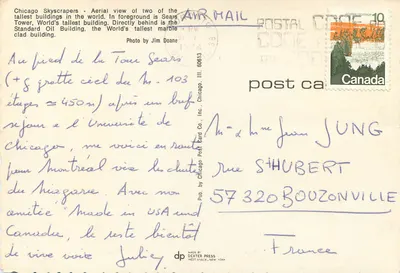 Chicago Skyscrapers - Aerial view of two of the
tallest buildings in the world. In foreground is Sears
Tower, World's tallest building. Directly behind is the
Standard Oil Building, the World's tallest marble
clad building.
Photo by Jim Doane
AIR MAIL
POSTAL CODE
10
Canada
post
Au pied de la Tour Sears
(+ gratte ciel du M. 103
étages ≈ 450 m) après un bref
séjour à l'Université de
Chicago, me voici en route
pour Montréal via les chutes
du Niagara. Avec mon
amitié "made in USA and
Canada", le reste bientôt
de vive voix Julien
Pub. by Chicago Post Card Co., Inc. Chicago, Ill. 60613
M & Mme Jean JUNG
rue St HUBERT
57320 BOUZONVILLE
France
dp
DEXTER PRESS